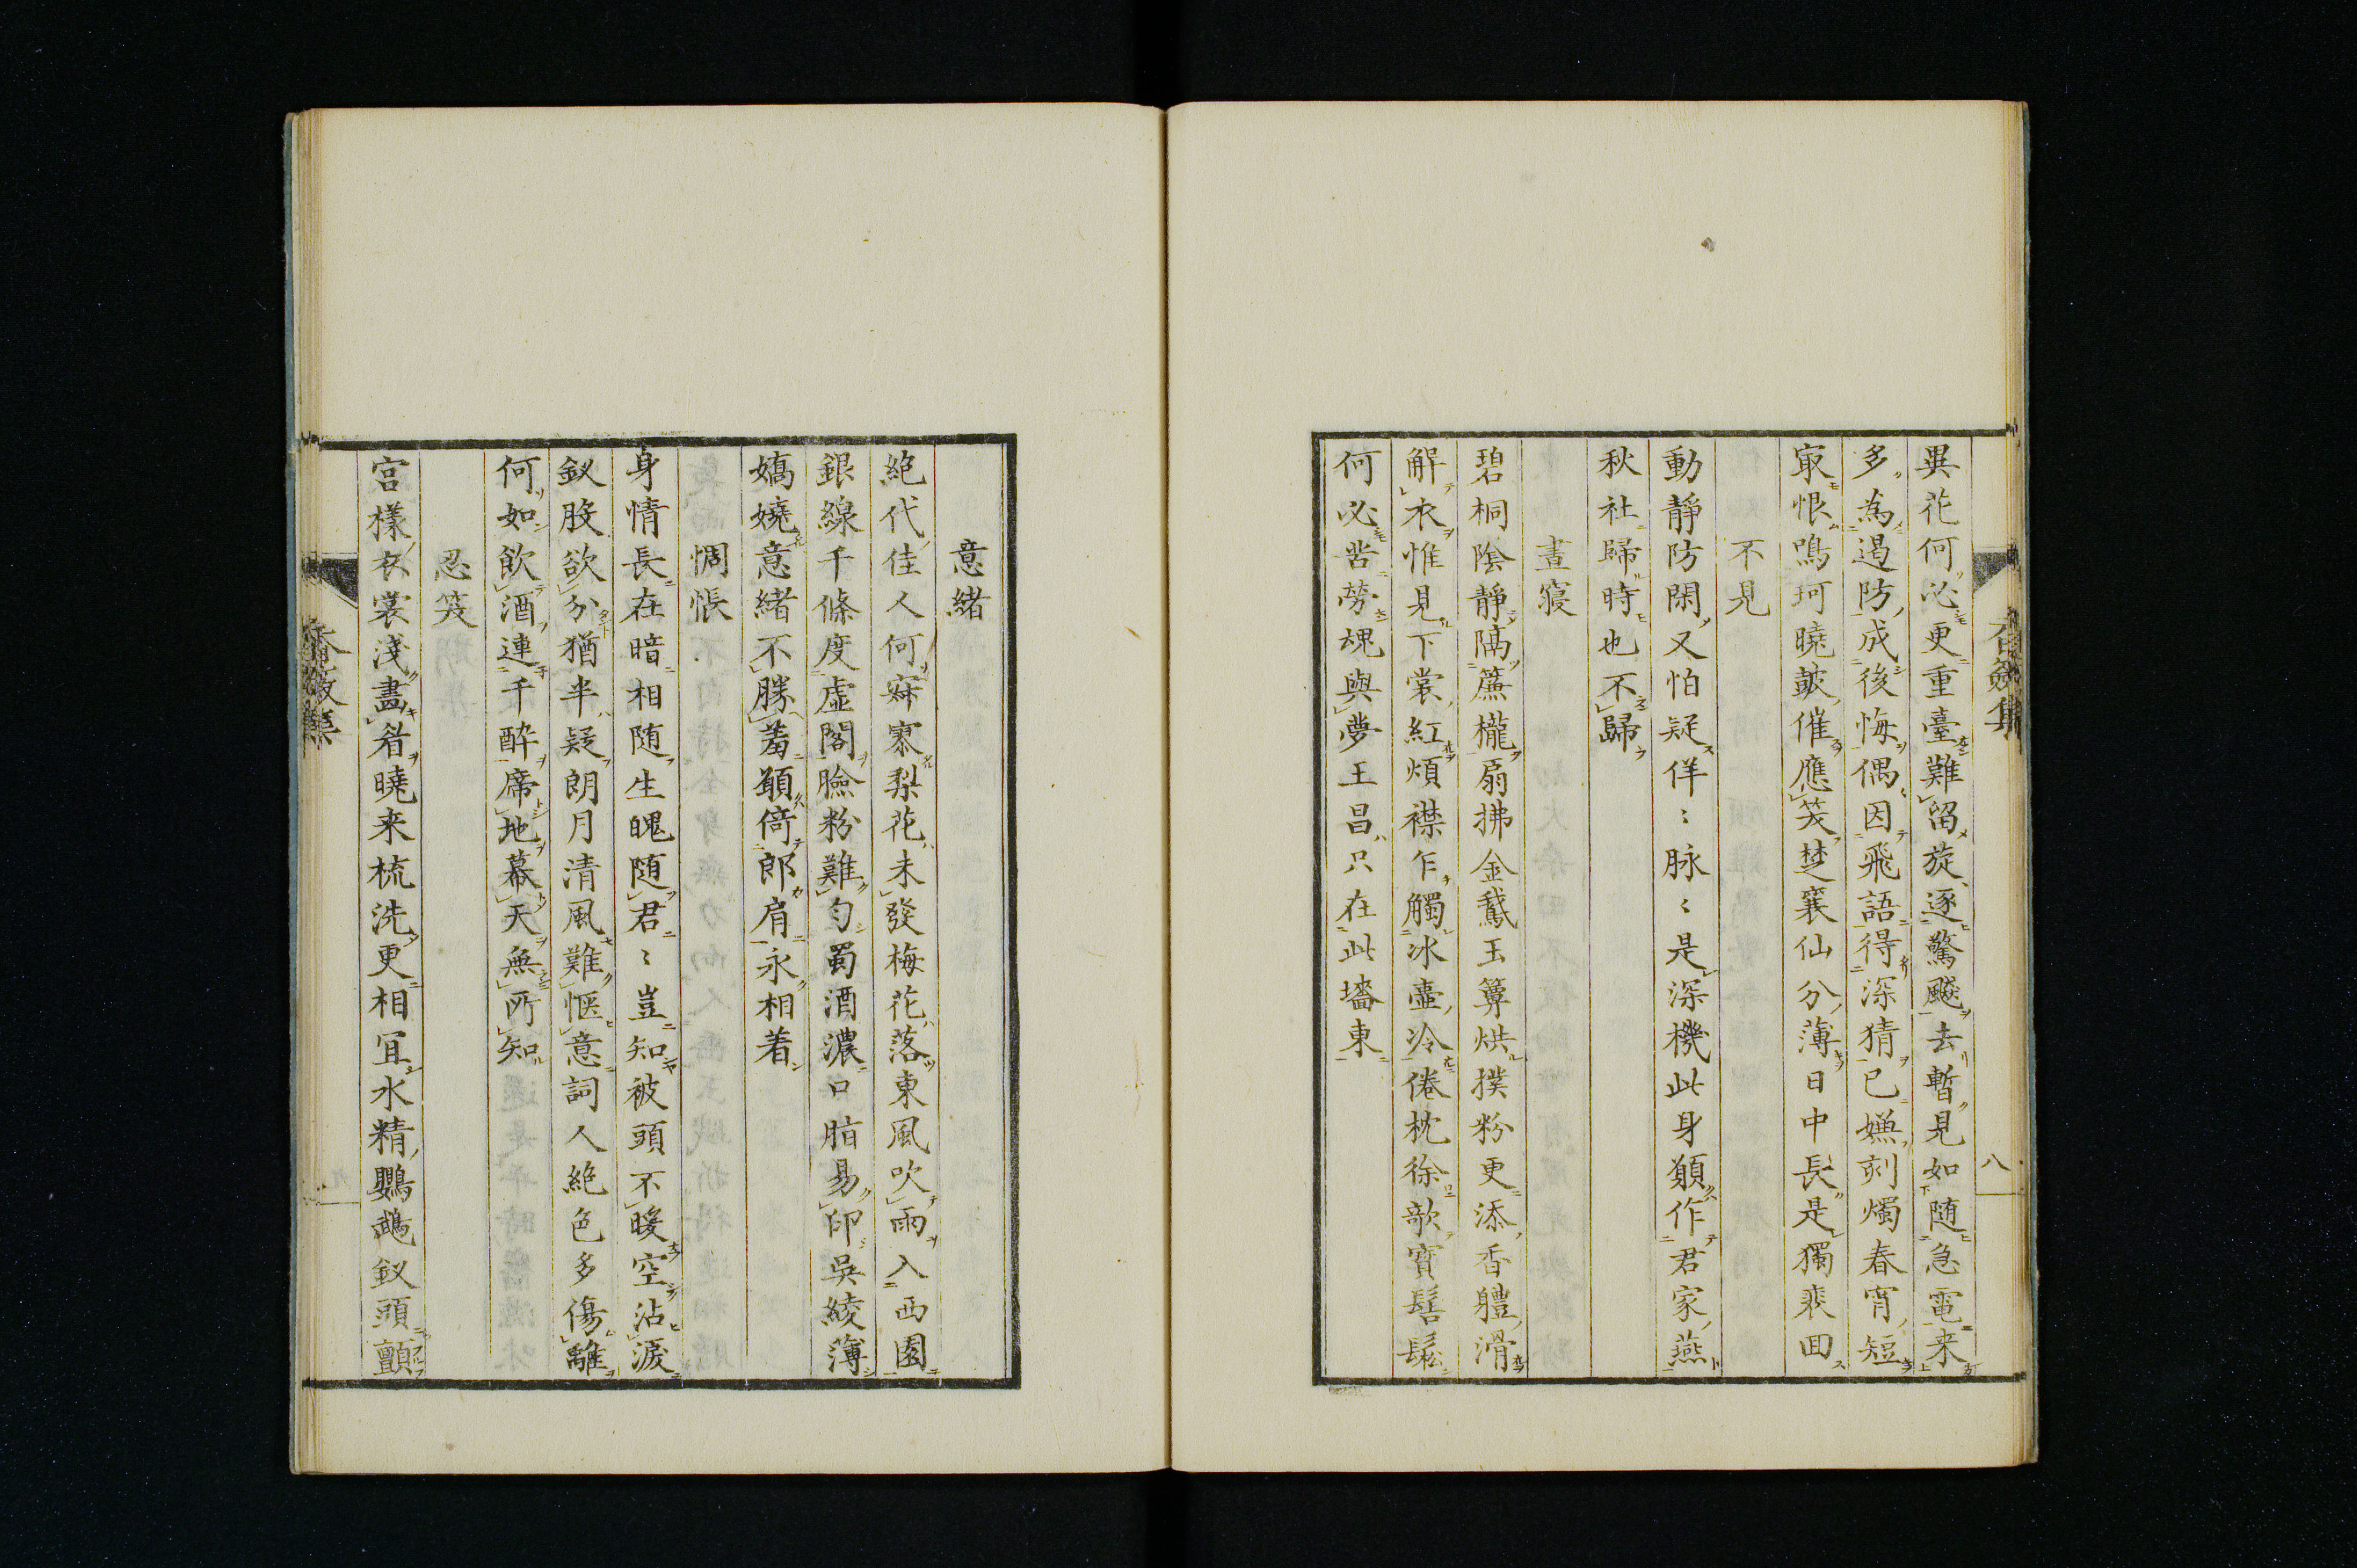 異花何必更重臺難留旋逐驚飈去暫見如随急電来
多為遏防成後悔偶因飛語得深猜已嫌刻燭春宵短
㝡恨鳴珂曉皷催應笑楚襄仙分薄日中長是獨裴回
不見
動靜防閑又怕疑佯〻脉〻是深機此身願作君家燕
秋社歸時也不歸
晝寢
碧桐陰靜隔簾櫳扇拂金鵞玉簟烘撲粉更添香軆滑
解衣惟見下裳紅煩襟乍觸冰壺冷倦枕徐欹寳髻鬆
何必苦勞魂與夢王昌只在此墻東
香籢集
八
意緒
絶代佳人何寂寞梨花未發梅花落東風吹雨入西園
銀線千條度虛閣臉粉難匀蜀酒濃口脂易印吳綾薄
嬌嬈意緒不勝羞願倚郎肩永相着
惆悵
身情長在暗相随生魄随君〻豈知被頭不暖空沾淚
釵股欲分猶半疑朗月清風難愜意詞人絶色多傷離
何如飲酒連千醉席地幕天無所知
忍笑
宮樣衣裳淺畵眉曉来梳洗更相宜水精鸚鵡釵頭顫
香籢集